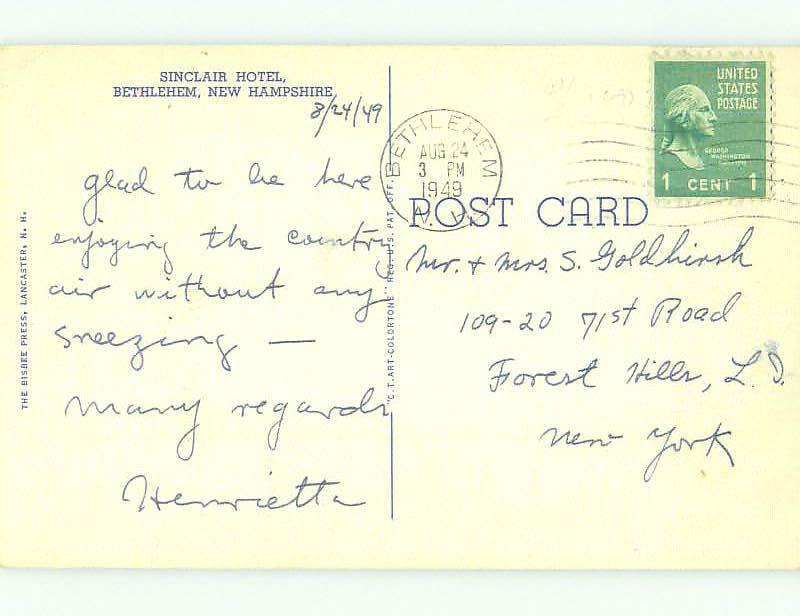 SINCLAIR HOTEL,
BETHLEHEM, NEW HAMPSHIRE
8/24/49
glad to be here
enjoying the country
air without any
sneezing —
many regards
Henrietta
THE BISBEE PRESS, LANCASTER, N. H.
"C.T. ART-COLORTONE" REG. U.S. PAT. OFF.
BETHLEHEM
AUG 24
3 PM
1949
N. H.
UNITED
STATES
POSTAGE
GEORGE
WASHINGTON
1 CENT 1
POST CARD
Mr. + Mrs. S. Goldhirsh
109-20 71st Road
Forest Hills, L. I.
New York